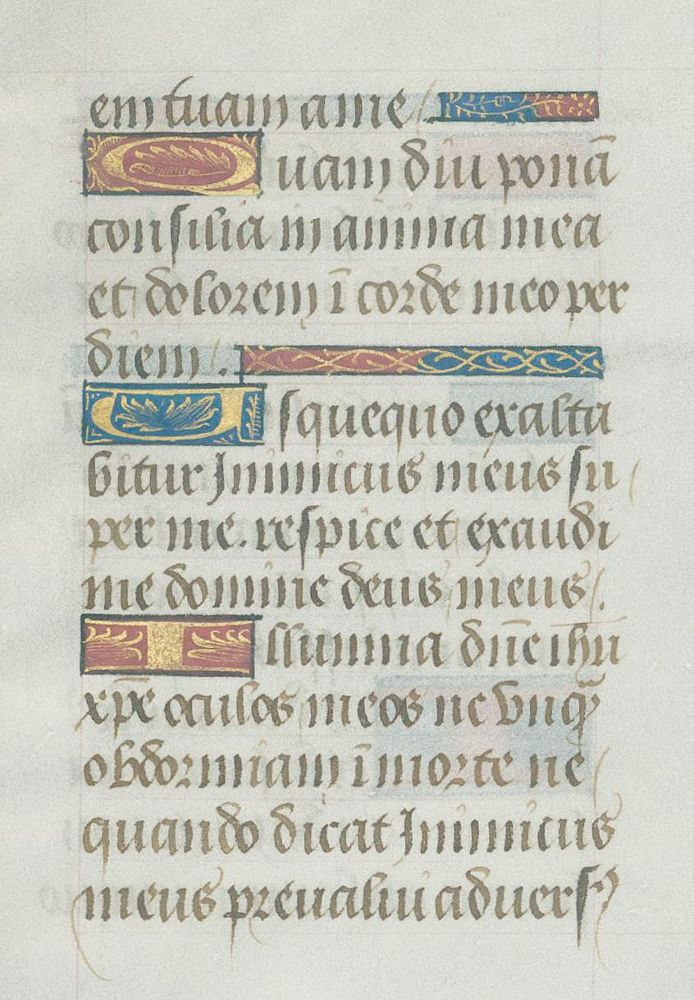 em tuam a me
Quam diu ponā
consilia in anima mea
et dolorem ī corde meo per
diem.
Usquequo exalta
bitur Inimicus meus su
per me. respice et exaudi
me domine deus meus.
Illumina dn̄e ihū
xp̄e oculos meos ne vnq̄
obdormiam ī morte ne
quando dicat Inimicus
meus preualui aduersꝰ